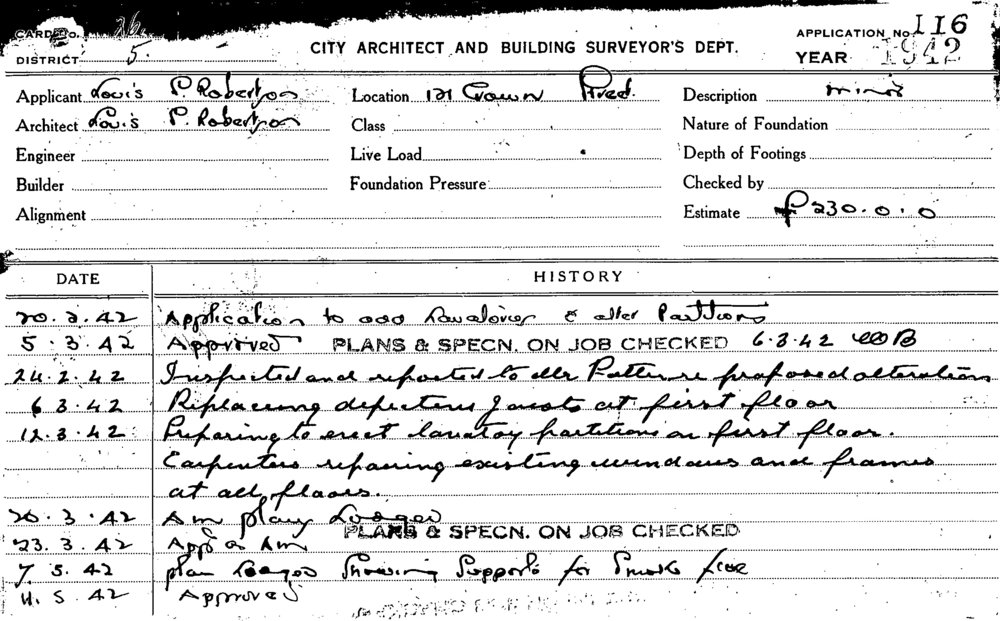 CARD No. 26
DISTRICT 5
CITY ARCHITECT AND BUILDING SURVEYOR'S DEPT.
APPLICATION No. 116
YEAR 1942
Applicant Louis P. Robertson Location 121 Crown Description minor
Architect Louis P. Robertson Class Nature of Foundation
Engineer Live Load Depth of Footings
Builder Foundation Pressure Checked by
Alignment Estimate £230.0.0
DATE HISTORY
20.2.42 Application to add Lavatories & alter Partitions
5.3.42 Approved PLANS & SPECN. ON JOB CHECKED 6.3.42
24.2.42 Inspected and reported to Mr Patten re proposed alteration
6.3.42 Replacing defective Joists at first floor
12.3.42 Preparing to erect lavatory partitions on first floor.
Carpenters repairing existing windows and frames
at all floors.
20.3.42 Am plans Lodged
PLANS & SPECN. ON JOB CHECKED
23.3.42 App on Am
7.5.42 plan Lodged Showing Supports for Smoke flue
11.5.42 Approved